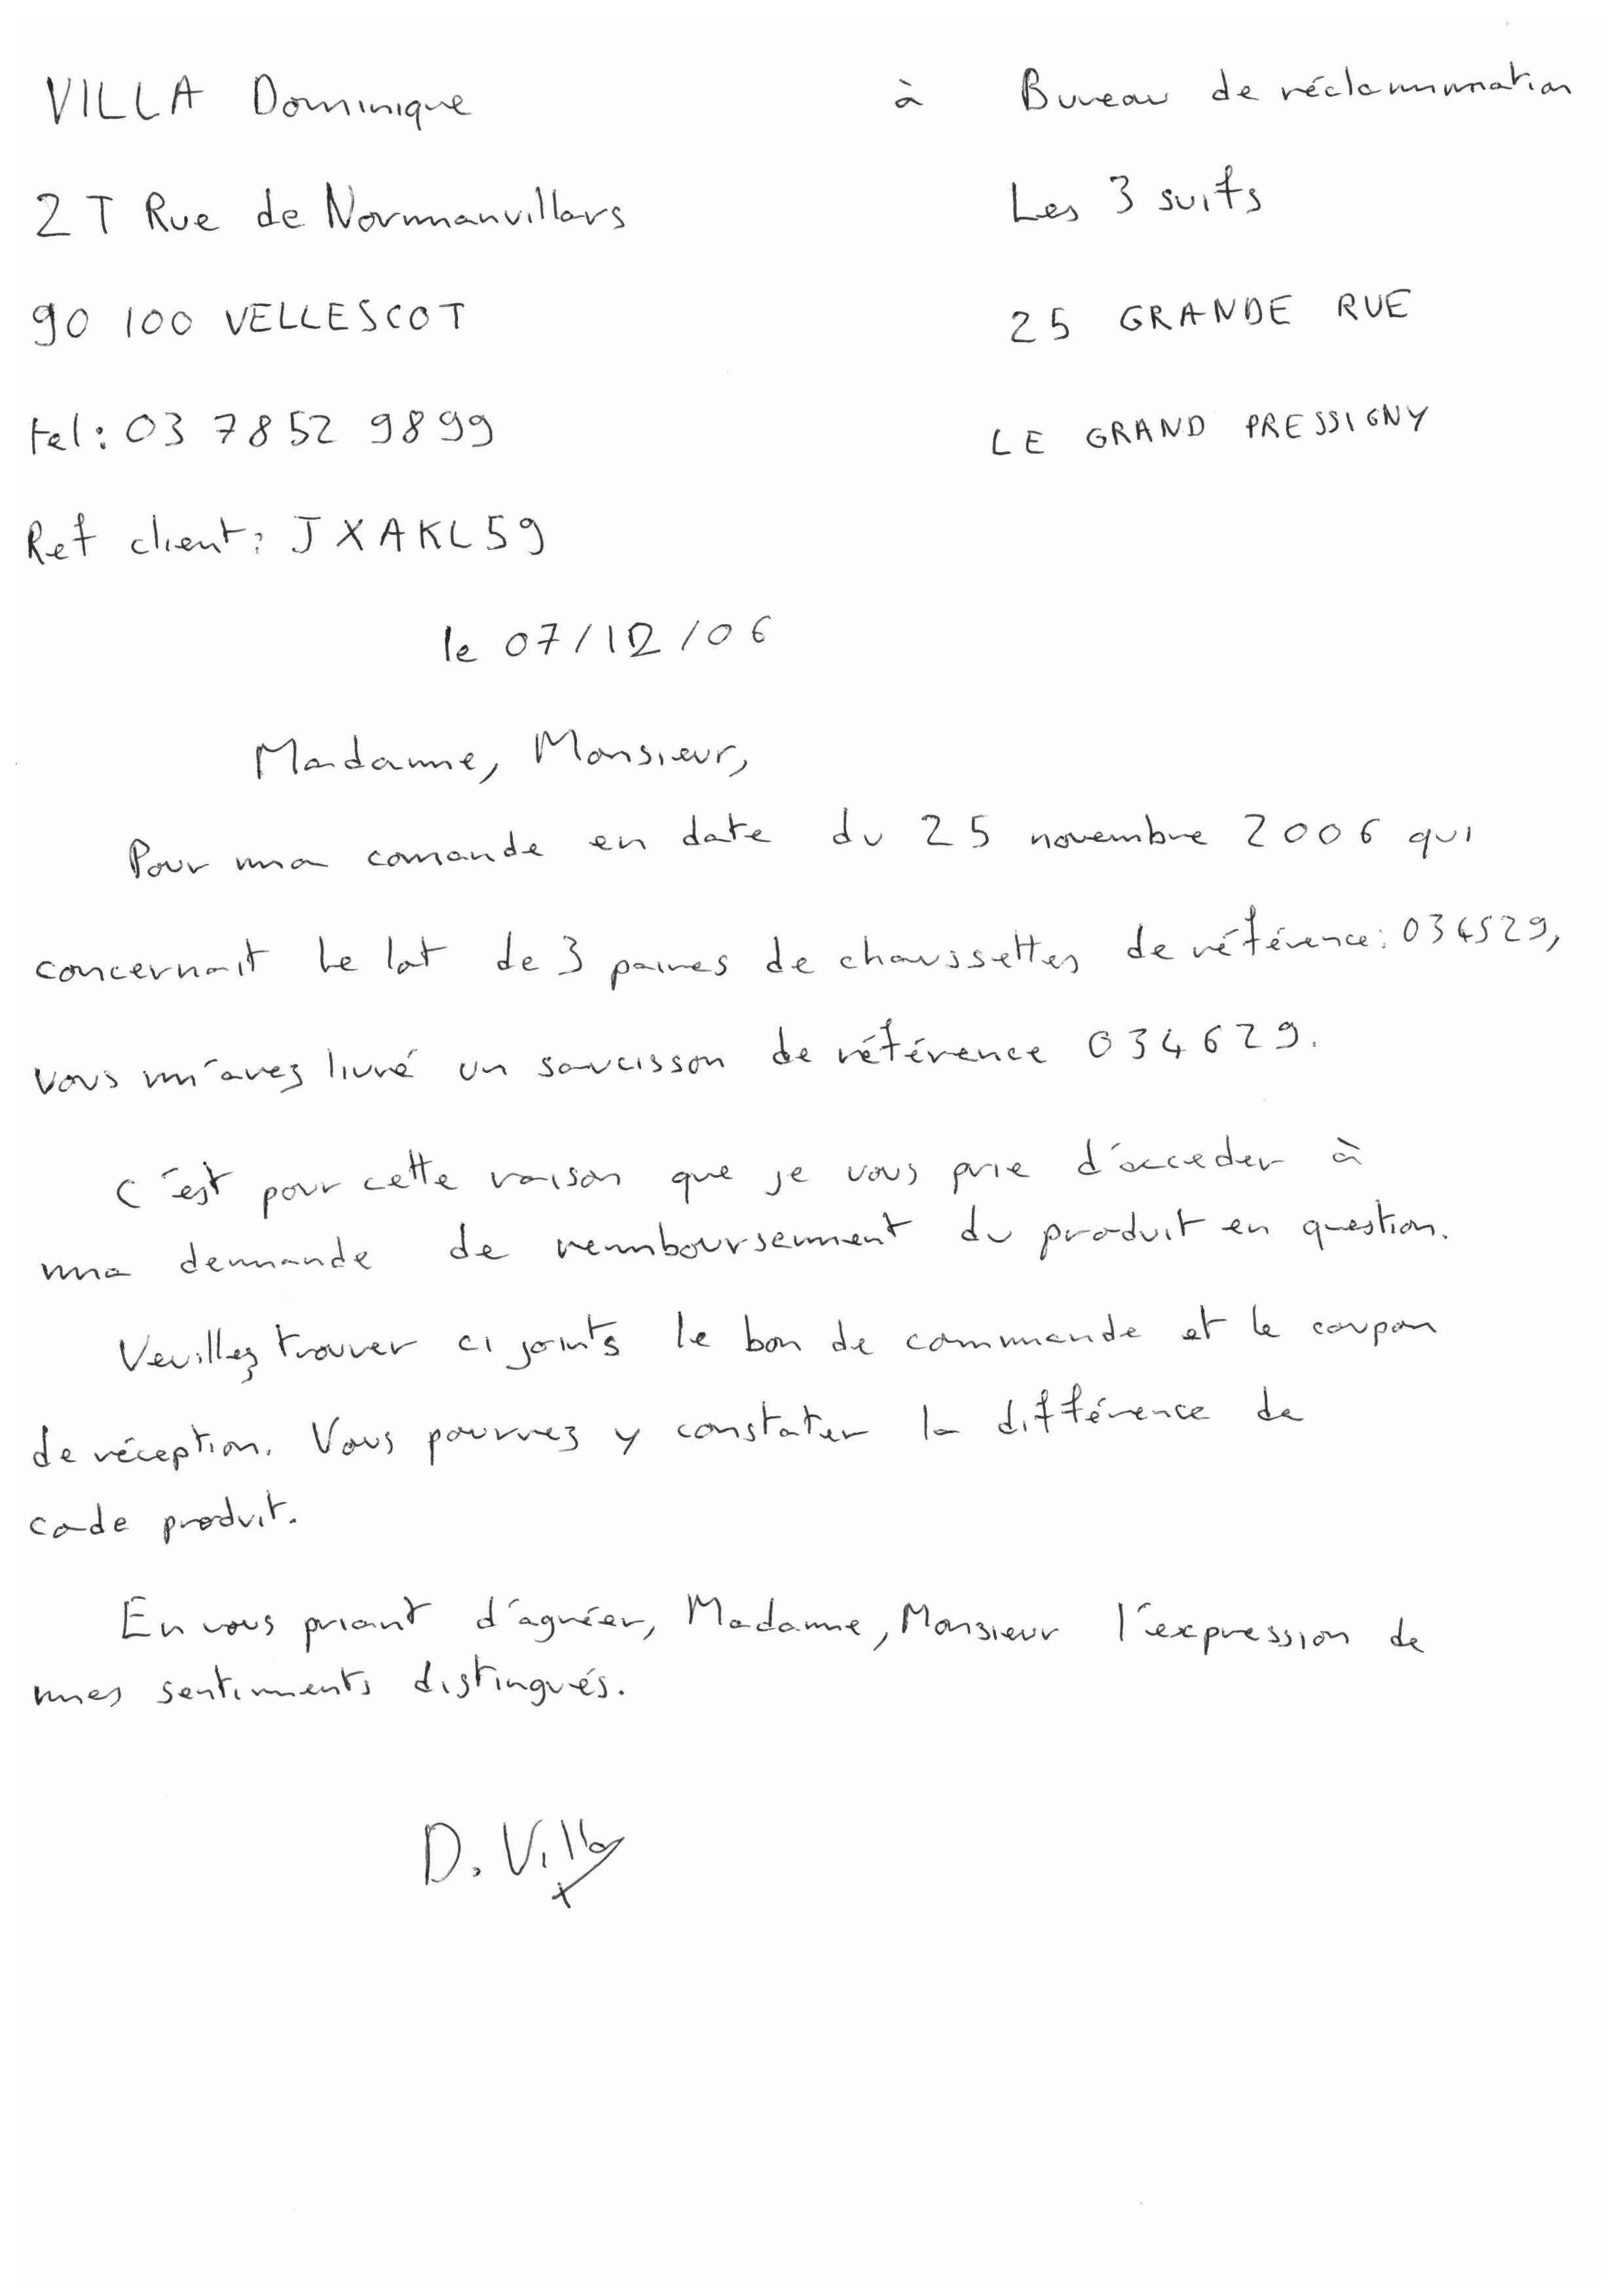 VILLA Dominique
2 T Rue de Normanvillars
90 100 VELLESCOT
tel: 03 78 52 98 99
Ref client: JXAKL59
à Bureau de réclammation
Les 3 suifs
25 GRANDE RUE
LE GRAND PRESSIGNY
le 07/12/06
Madame, Monsieur,
Pour ma comande en date du 25 novembre 2006 qui
concernait le lot de 3 paires de chaussettes de référence: 034529,
vous m'avez livré un saucisson de référence 034629.
C'est pour cette raison que je vous prie d'acceder à
ma demande de remboursement du produit en question.
Veuillez trouver ci joints le bon de commande et le coupon
de réception. Vous pourrez y constater la différence de
code produit.
En vous priant d'agréer, Madame, Monsieur l'expression de
mes sentiments distingués.
D. Villa